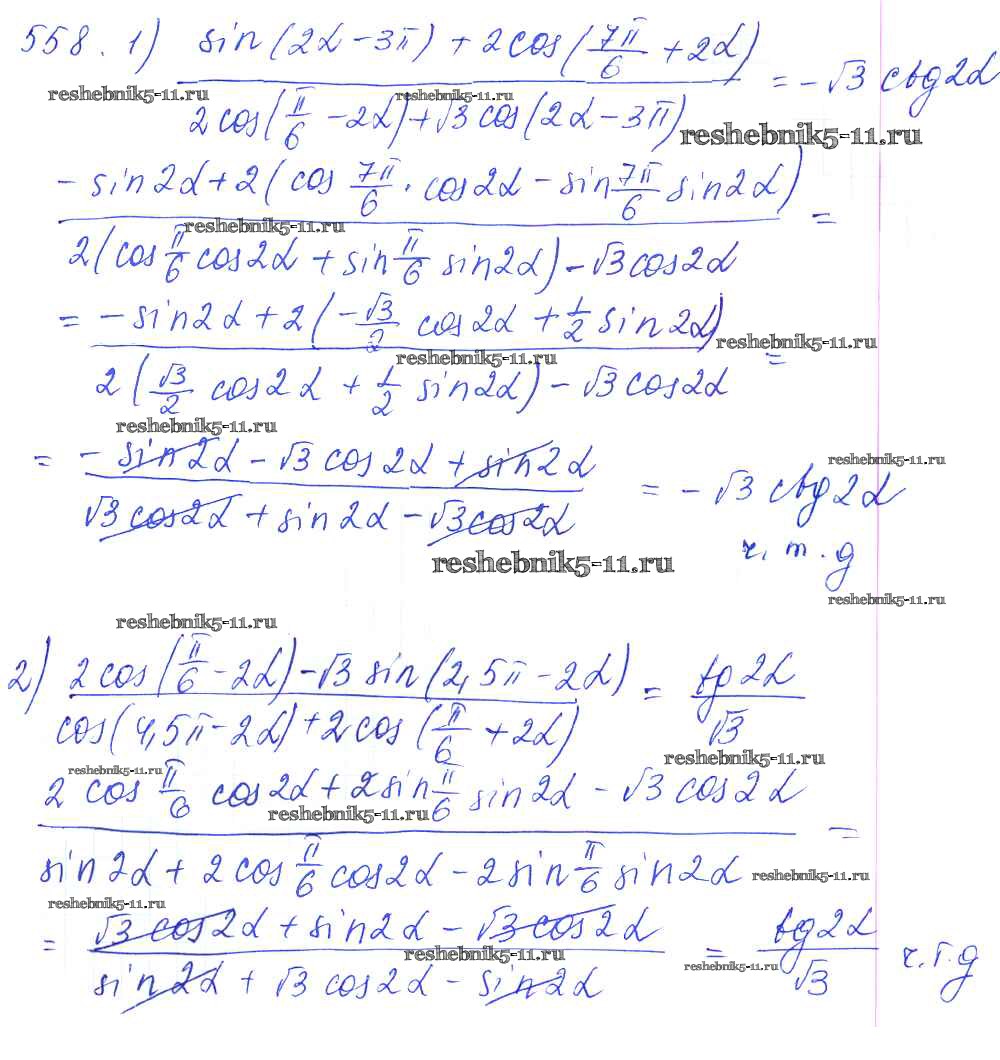 558. 1) sin(2α-3π) + 2cos(7π/6 + 2α) / 2cos(π/6 - 2α) + √3 cos(2α-3π) = -√3 ctg2α
reshebnik5-11.ru reshebnik5-11.ru
reshebnik5-11.ru
-sin2α + 2(cos 7π/6 · cos2α - sin 7π/6 sin2α) / 2(cos π/6 cos2α + sin π/6 sin2α) - √3 cos2α =
reshebnik5-11.ru
= -sin2α + 2(-√3/2 cos2α + 1/2 sin2α) / 2(√3/2 cos2α + 1/2 sin2α) - √3 cos2α =
reshebnik5-11.ru
reshebnik5-11.ru
reshebnik5-11.ru
= -sin2α - √3 cos2α + sin2α / √3 cos2α + sin2α - √3 cos2α = -√3 ctg2α
reshebnik5-11.ru
ч. т. д
reshebnik5-11.ru
reshebnik5-11.ru
reshebnik5-11.ru
2) 2cos(π/6 - 2α) - √3 sin(2,5π - 2α) / cos(4,5π - 2α) + 2cos(π/6 + 2α) = tg2α / √3
reshebnik5-11.ru
reshebnik5-11.ru
2cos π/6 cos2α + 2sin π/6 sin2α - √3 cos2α / sin2α + 2cos π/6 cos2α - 2sin π/6 sin2α =
reshebnik5-11.ru
reshebnik5-11.ru
reshebnik5-11.ru
= √3 cos2α + sin2α - √3 cos2α / sin2α + √3 cos2α - sin2α = tg2α / √3 ч.т.д
reshebnik5-11.ru
reshebnik5-11.ru